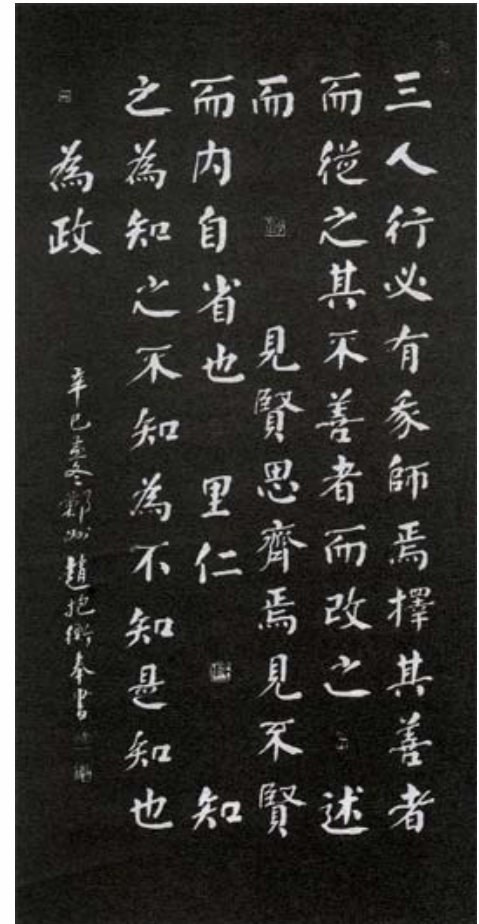 三人行必有我師焉擇其善者
而從之其不善者而改之 述
而 見賢思齊焉見不賢
而内自省也 里仁 知
之為知之不知為不知是知也
為政
辛巳冬鄭州趙抱衡奉書